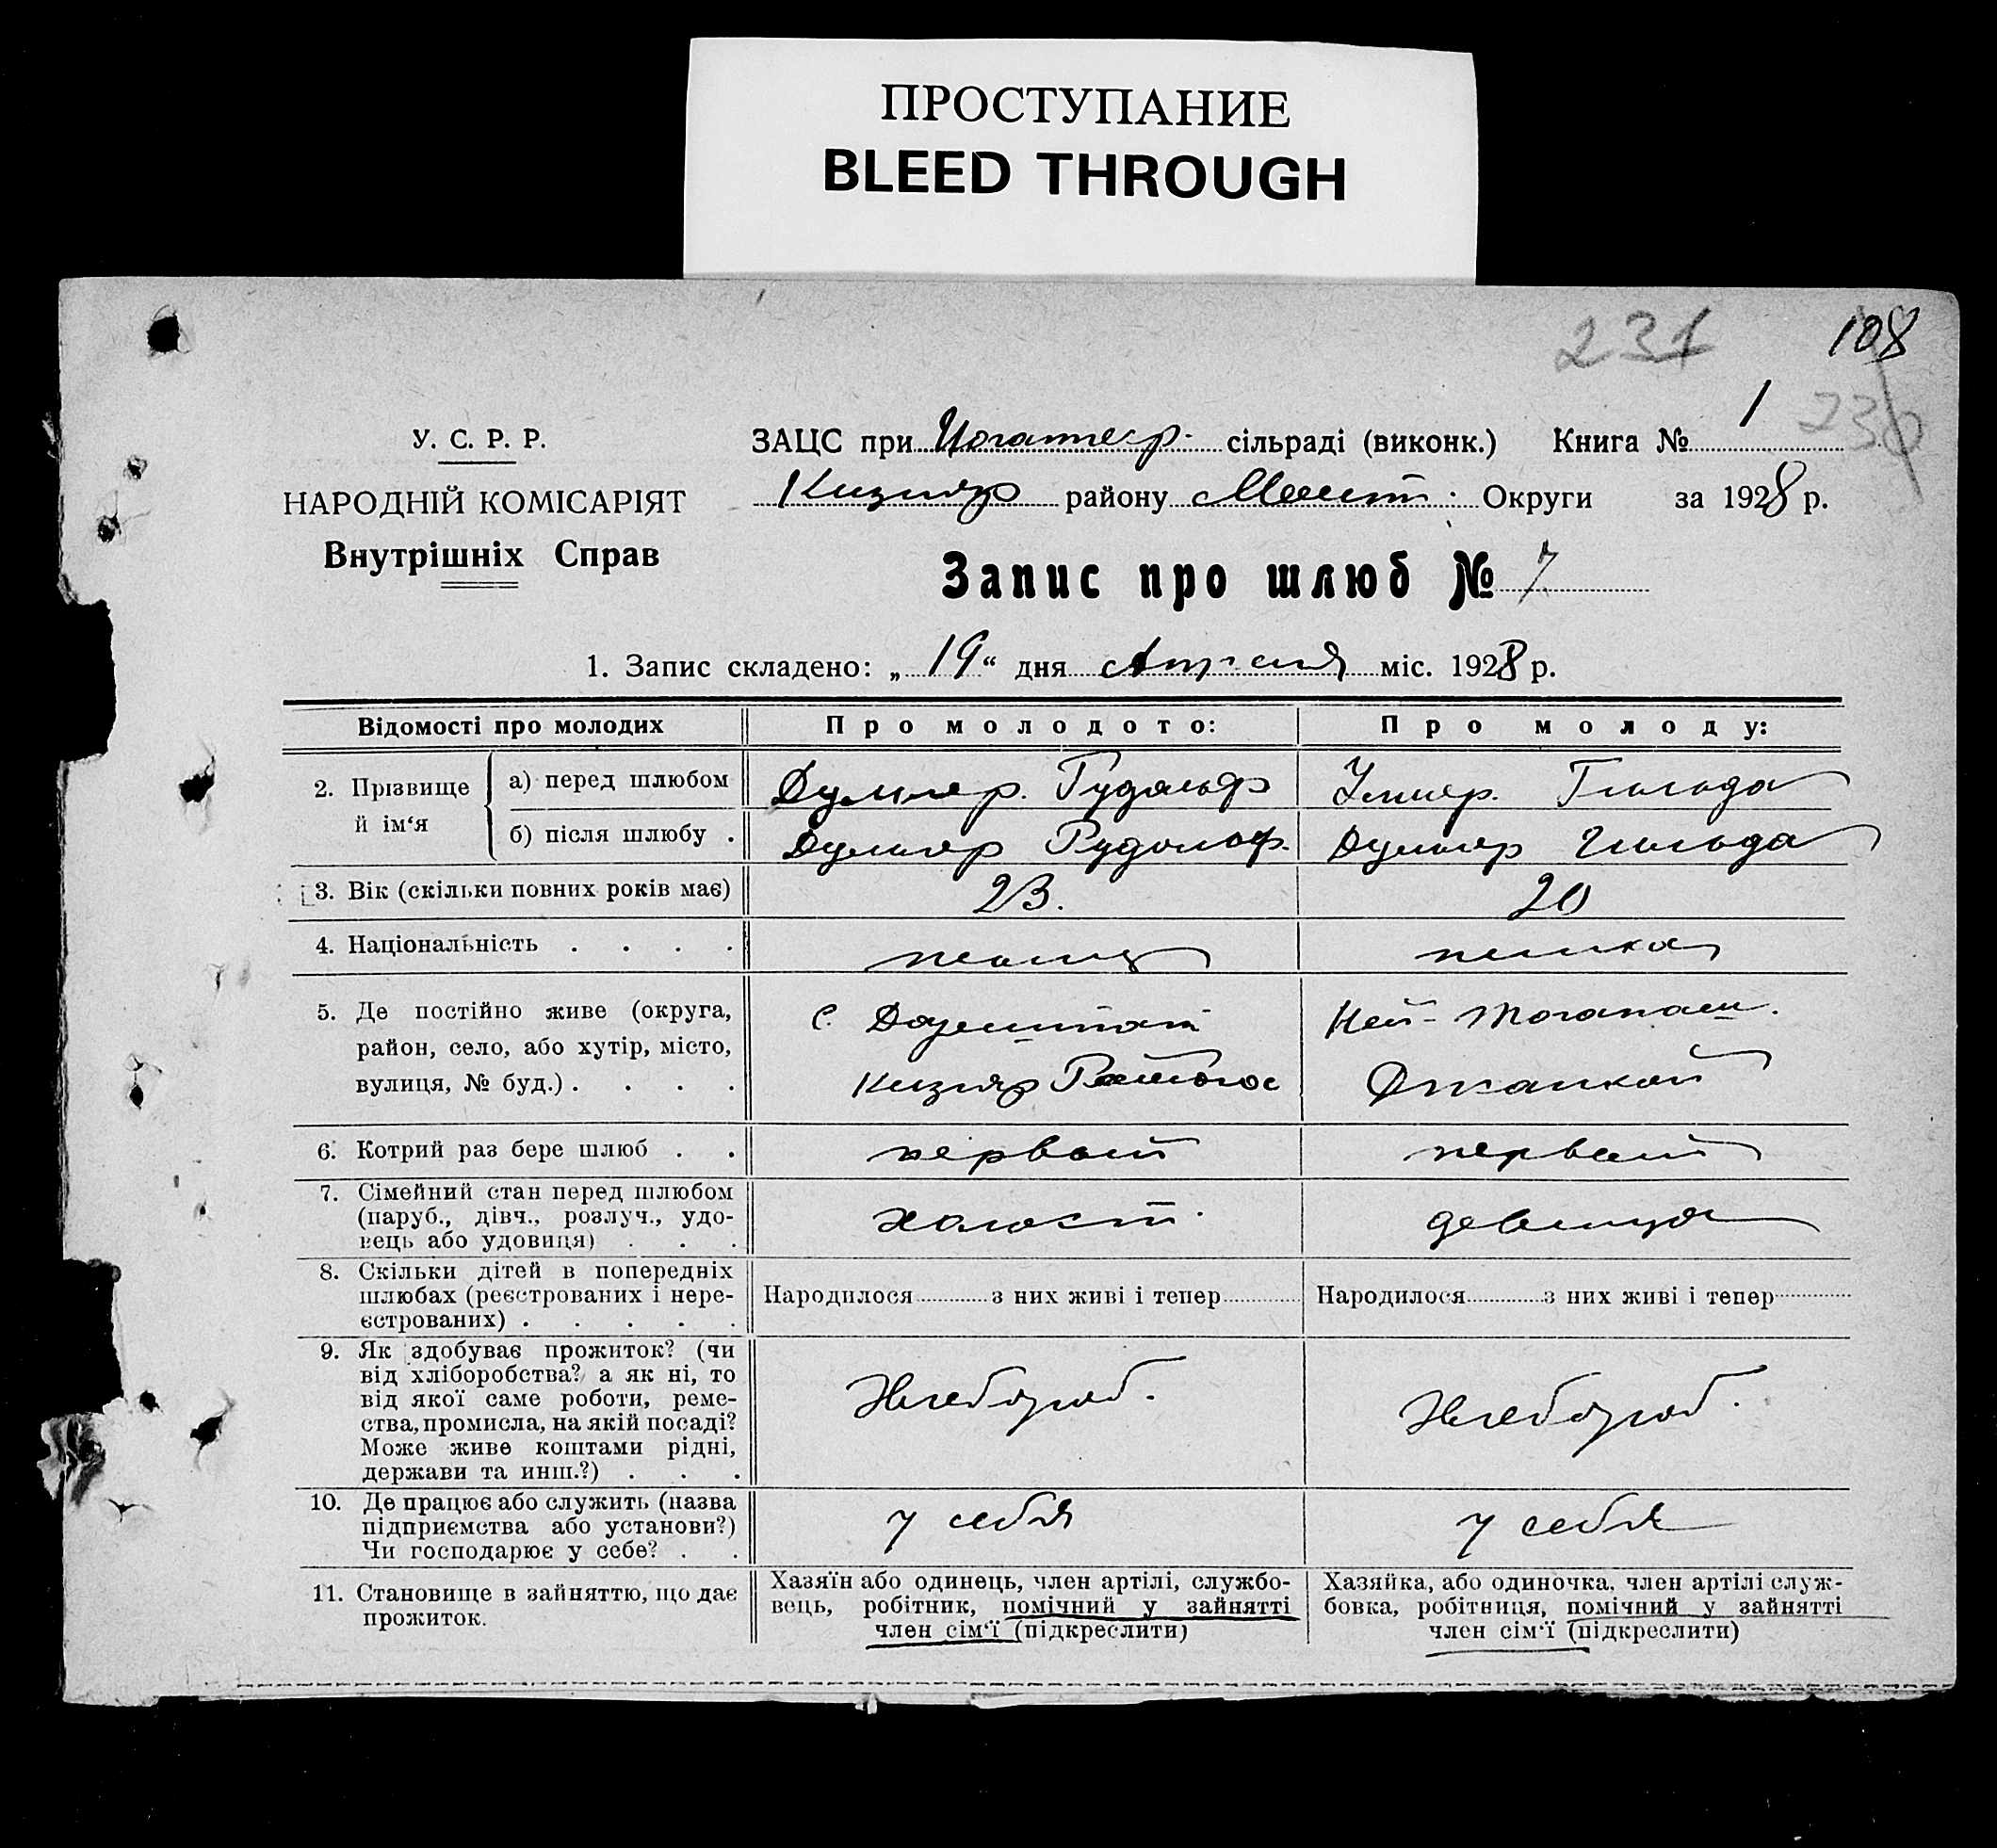 ПРОСТУПАНИЕ
BLEED THROUGH
231 108
230
У. С. Р. Р.
НАРОДНІЙ КОМІСАРІЯТ
Внутрішніх Справ
ЗАЦС при сільраді (виконк.) Книга № 1
Кизияр району Мелит. Округи за 1928 р.
Запис про шлюб № 7
1. Запис складено: „ 19 “ дня Апреля міс. 1928 р.
Відомості про молодих Про молодого: Про молоду:
2. Прізвище й ім‘я
а) перед шлюбом Рудольф Гильда
б) після шлюбу . Рудольф Гильда
3. Вік (скільки повних років має) 23. 20
4. Національність . . . . немец немка
5. Де постійно живе (округа,
район, село, або хутір, місто,
вулиця, № буд.) . . . .
с.
Кизияр
Ней-
Джанкой
6. Котрий раз бере шлюб . . первый первый
7. Сімейний стан перед шлюбом
(паруб., дівч., розлуч., удо-
вець або удовиця) . . .
холост. девица
8. Скільки дітей в попередніх
шлюбах (реєстрованих і нере-
єстрованих) . . . . .
Народилося з них живі і тепер
Народилося з них живі і тепер
9. Як здобуває прожиток? (чи
від хліборобства? а як ні, то
від якої саме роботи, реме-
ства, промисла, на якій посаді?
Може живе коштами рідні,
держави та инш.?) . . .
Хлебороб. Хлебороб.
10. Де працює або служить (назва
підприємства або установи?)
Чи господарює у себе? . .
у себя у себя
11. Становище в зайняттю, що дає
прожиток.
Хазяїн або одинець, член артілі, службо-
вець, робітник, помічний у зайнятті
член сім‘ї (підкреслити)
Хазяйка, або одиночка, член артілі служ-
бовка, робітниця, помічний у зайнятті
член сім‘ї (підкреслити)